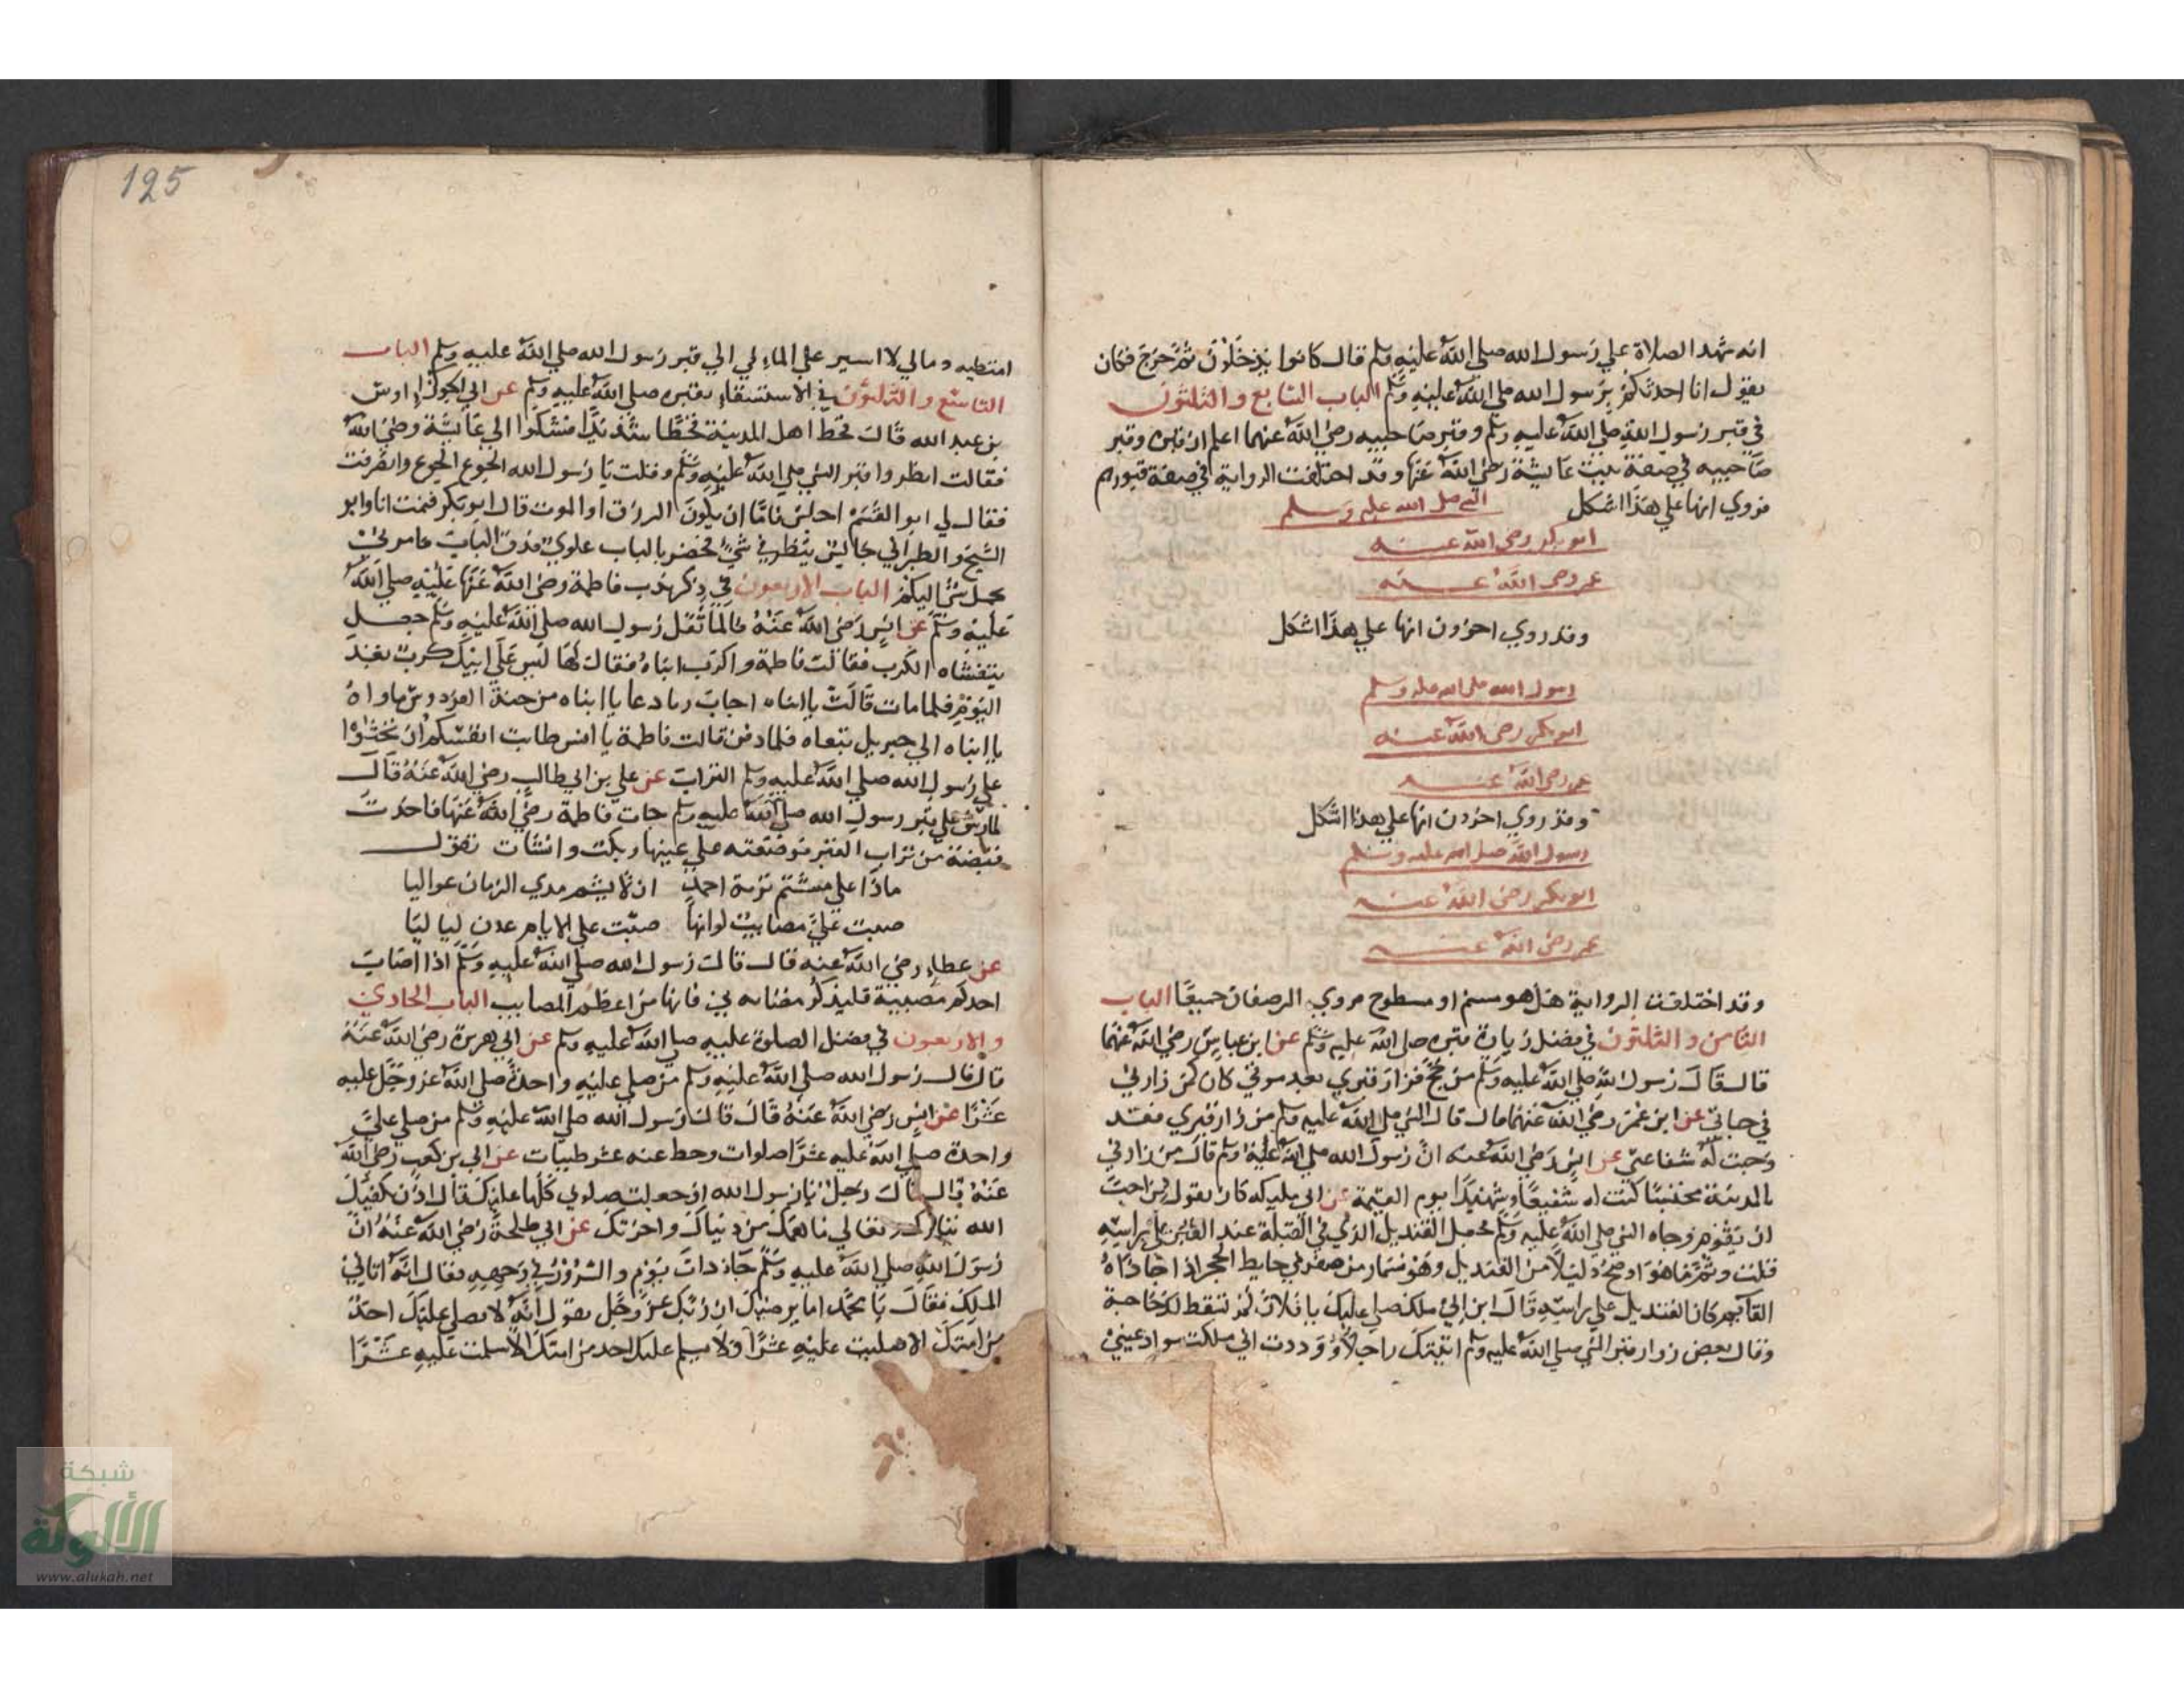 انه شهد الصلاة علي رسول الله صلي الله عليه وسلم قال كانوا يدخلون ثم خرج فكان
يقول انا احدثكم برسول الله صلي الله عليه وسلم الباب السابع والثلثون
في قبر رسول الله صلي الله عليه وسلم وقبر صاحبيه رضي الله عنهما اعلم ان قبره وقبر
صاحبيه في صفة بيت عايشة رضي الله عنها وقد اختلفت الرواية في صفة قبورهم
فروي انها علي هذا الشكل النبي صلي الله عليه وسلم
ابو بكر رضي الله عنه
عمر رضي الله عنه
وقد روي اخرون انها علي هذا الشكل
رسول الله صلي الله عليه وسلم
ابو بكر رضي الله عنه
عمر رضي الله عنه
وقد روي اخرون انها علي هذا الشكل
رسول الله صلي الله عليه وسلم
ابو بكر رضي الله عنه
عمر رضي الله عنه
وقد اختلفت الرواية هل هو مسنم او مسطوح فروي الوصفان جميعا الباب
الثامن والثلثون في فضل زيارة قبره صلي الله عليه وسلم عن ابن عباس رضي الله عنهما
قال قال رسول الله صلي الله عليه وسلم من حج فزار قبري بعد موتي كان كمن زارني
في حياتي عن ابن عمر رضي الله عنهما قال قال النبي صلي الله عليه وسلم من زار قبري فقد
وجبت له شفاعتي عن انس رضي الله عنه ان رسول الله صلي الله عليه وسلم قال من زارني
بالمدينة محتسبا كنت له شفيعا وشهيدا يوم القيمة عن ابي مليكه كان يقول من احب
ان يقوم وجاه النبي صلي الله عليه وسلم فيجعل القنديل الذي في القبلة عند القبر علي راسه
قلت وثم ما هو اوضح دليلا من القنديل وهو مسمار من صفر في حايط الحجر اذا حاذاه
القايم كان القنديل علي راسه قال ابن ابي ملك صلي عليك يا فلان لم تسقط لك حاجة
وقال بعض زوار قبر النبي صلي الله عليه وسلم اتيتك راجلا ووددت اني ملكت سواد عيني
125
امتطيه ومالي لا اسير علي الماقي الي قبر رسول الله صلي الله عليه وسلم الباب
التاسع والثلثون في الاستسقاء بقبره صلي الله عليه وسلم عن ابي الجوزاء اوس
بن عبد الله قال قحط اهل المدينة قحطا شديدا فشكوا الي عايشة رضي الله
فقالت انظروا قبر النبي صلي الله عليه وسلم وقلت يا رسول الله الجوع الجوع وانصرفت
فقال لي ابو القسم اجلس فاما ان يكون الرزق او الموت قال ابو بكر فنمت انا وابو
الشيخ والطبراني جالس ينظر في شي فحضر بالباب علوي فدق الباب
بحمل شي اليكم الباب الاربعون في ذكر ندب فاطمة رضي الله عنها عليه صلي الله
عليه وسلم عن انس رضي الله عنه قال لما ثقل رسول الله صلي الله عليه وسلم جعل
يتغشاه الكرب فقالت فاطمة واكرب ابتاه فقال لها ليس علي ابيك كرب بعد
اليوم فلما مات قالت يا ابتاه اجاب ربا دعا يا ابتاه من جنة الفردوس ماواه
يا ابتاه الي جبريل ننعاه فلما دفن قالت فاطمة يا انس طابت انفسكم ان تحثوا
علي رسول الله صلي الله عليه وسلم التراب عن علي بن ابي طالب رضي الله عنه قال
لما رش علي قبر رسول الله صلي الله عليه وسلم جات فاطمة رضي الله عنها فاخذت
قبضة من تراب القبر فوضعته علي عينها وبكت وانشات تقول
ماذا علي من شم تربة احمد ان لا يشم مدي الزمان عواليا
صبت علي مصايب لو انها صبت علي الايام عدن لياليا
عن عطاء رضي الله عنه قال قال رسول الله صلي الله عليه وسلم اذا اصاب
احدكم مصيبة فليذكر مصابه بي فانها من اعظم المصايب الباب الحادي
والاربعون في فضل الصلوة عليه صلي الله عليه وسلم عن ابي هريرة رضي الله عنه
قال قال رسول الله صلي الله عليه وسلم من صلي عليه واحدة صلي الله عز وجل عليه
عشرا عن انس رضي الله عنه قال قال رسول الله صلي الله عليه وسلم من صلي علي
واحدة صلي الله عليه عشر صلوات وحط عنه عشر طيبات عن ابي بن كعب رضي الله
عنه قال قال رجل يا رسول الله ان جعلت صلوتي كلها عليك قال اذن يكفيك
الله تبارك وتعالي ما همك من دنياك واخرتك عن ابي طلحة رضي الله عنه ان
رسول الله صلي الله عليه وسلم جا ذات يوم والسرور في وجهه فقال انه اتاني
الملك فقال يا محمد اما يرضيك ان ربك عز وجل يقول انه لا يصلي عليك احد
من امتك الا صليت عليه عشرا ولا يسلم عليك احد من امتك الا سلمت عليه عشرا
شبكة
الألوكة
www.alukah.net